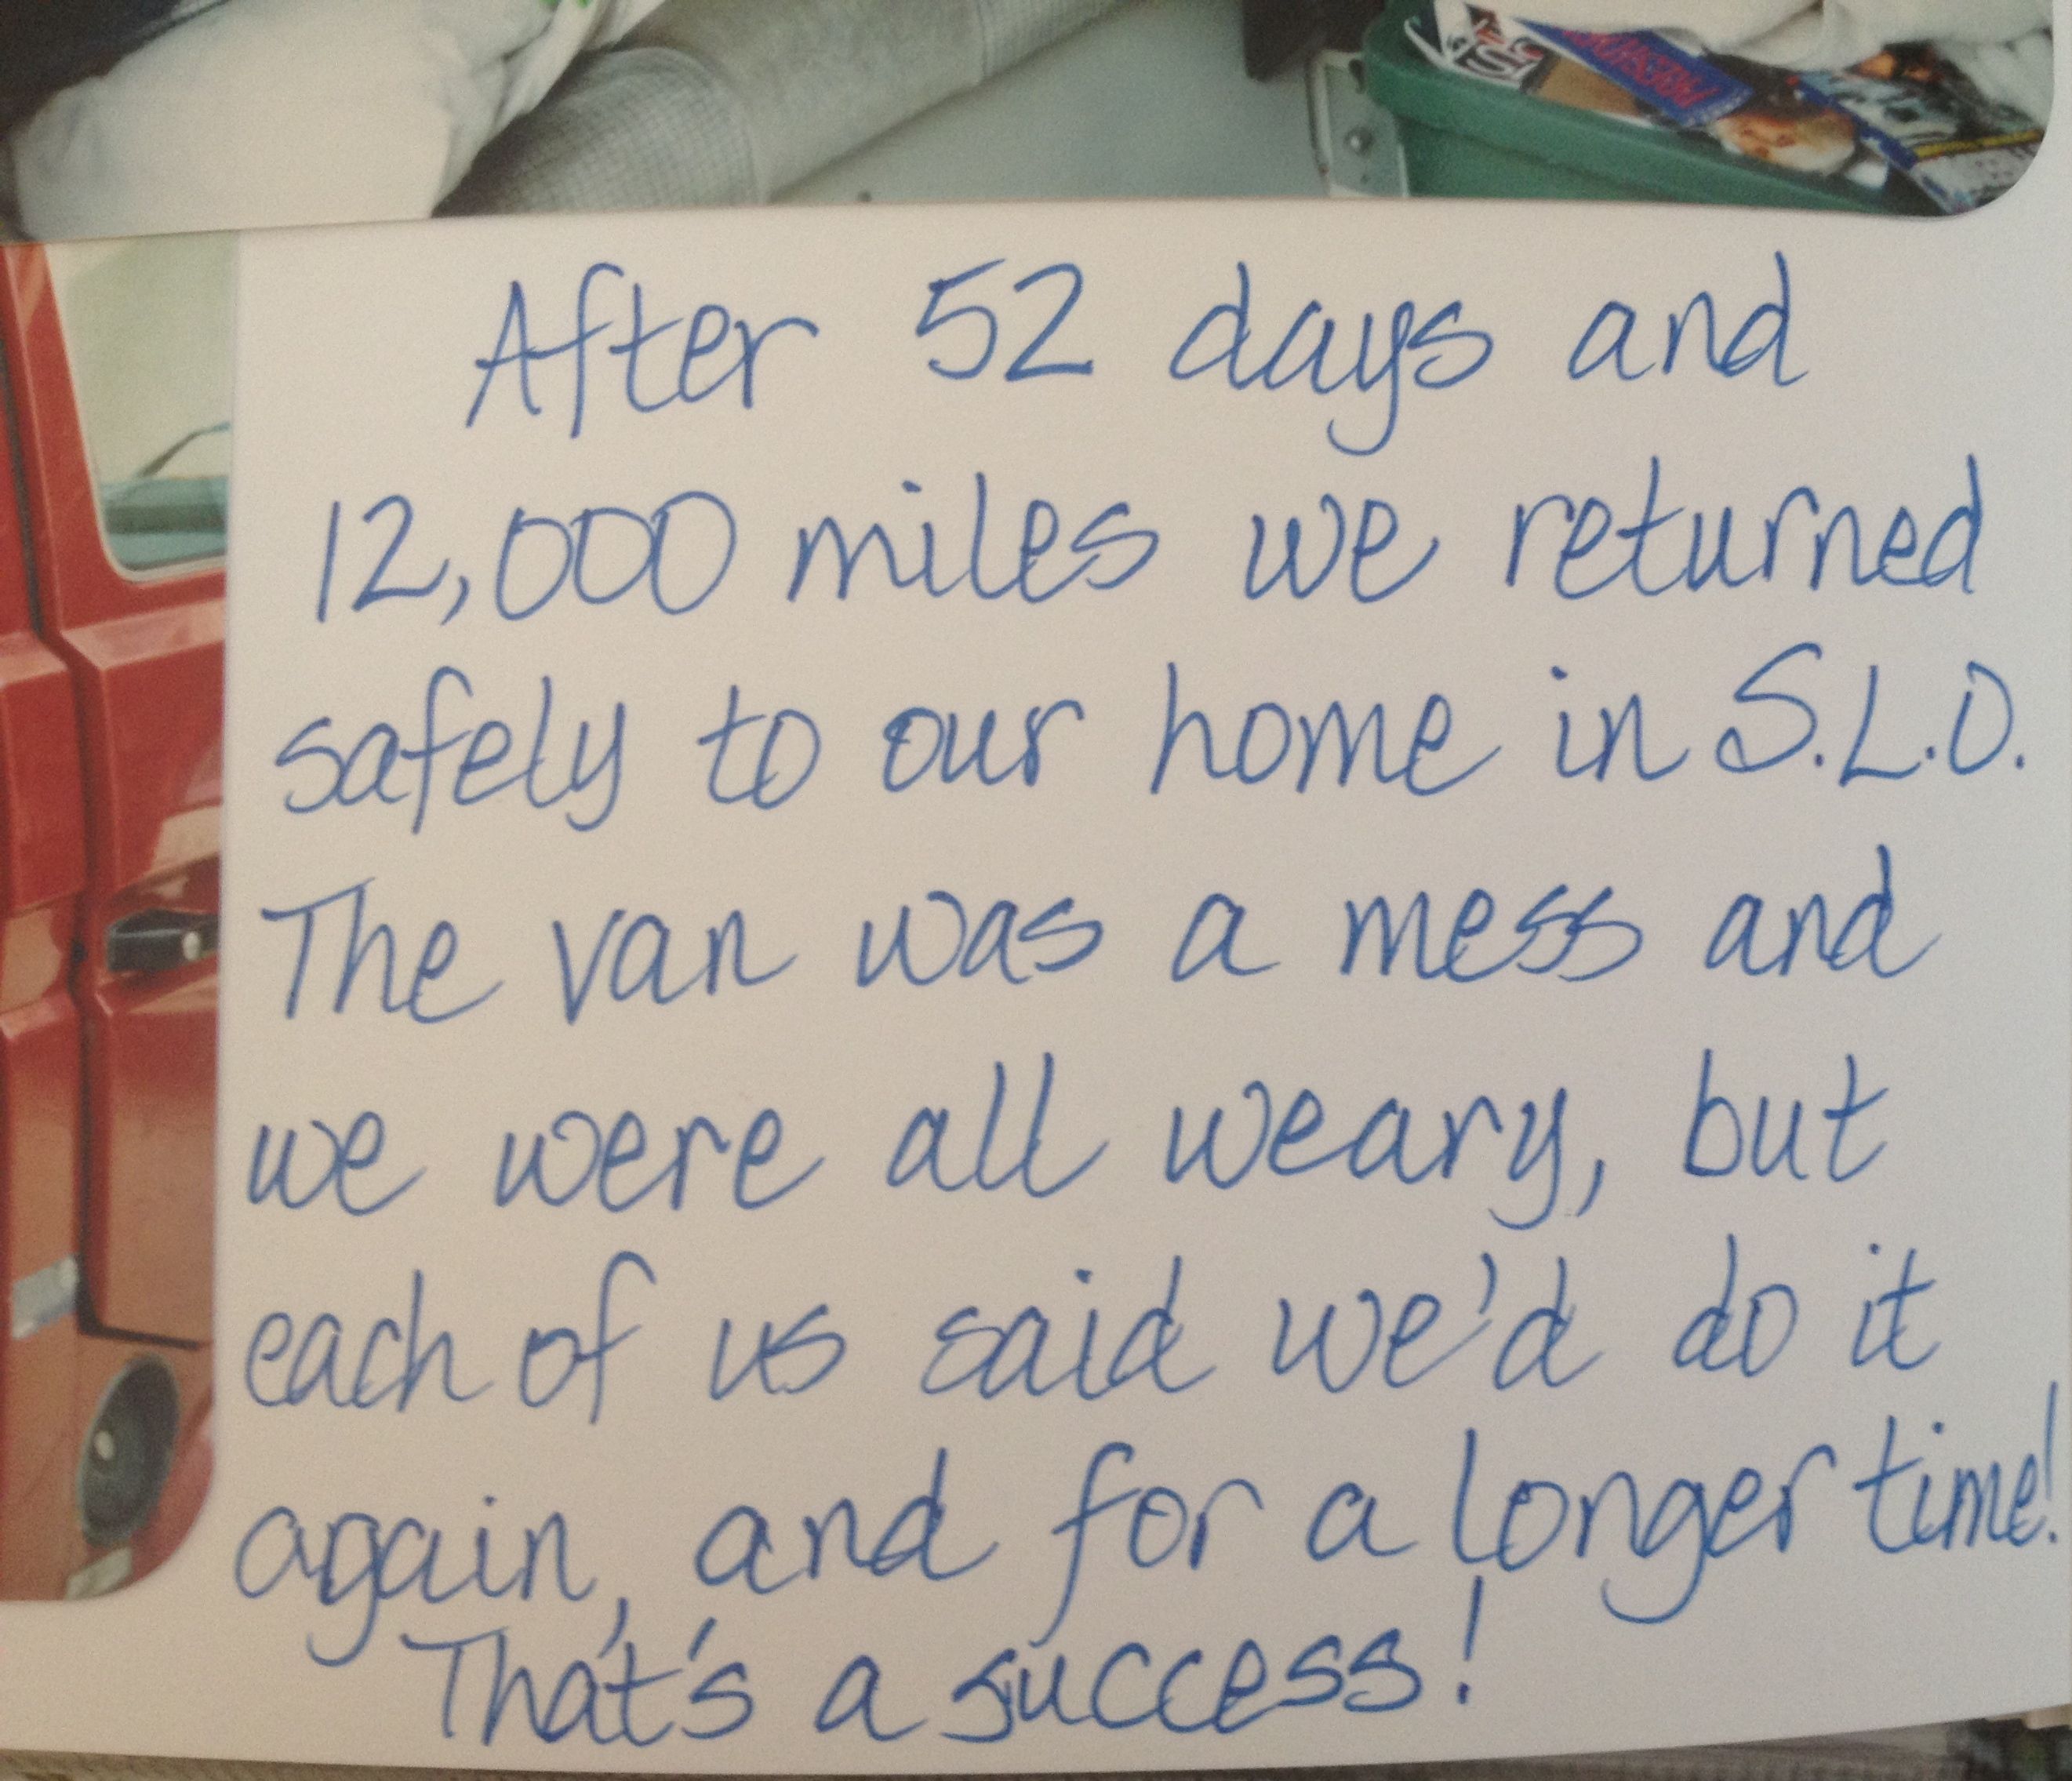 After 52 days and
12,000 miles we returned
safely to our home in S.L.O.
The van was a mess and
we were all weary, but
each of us said we'd do it
again, and for a longer time!
That's a success!